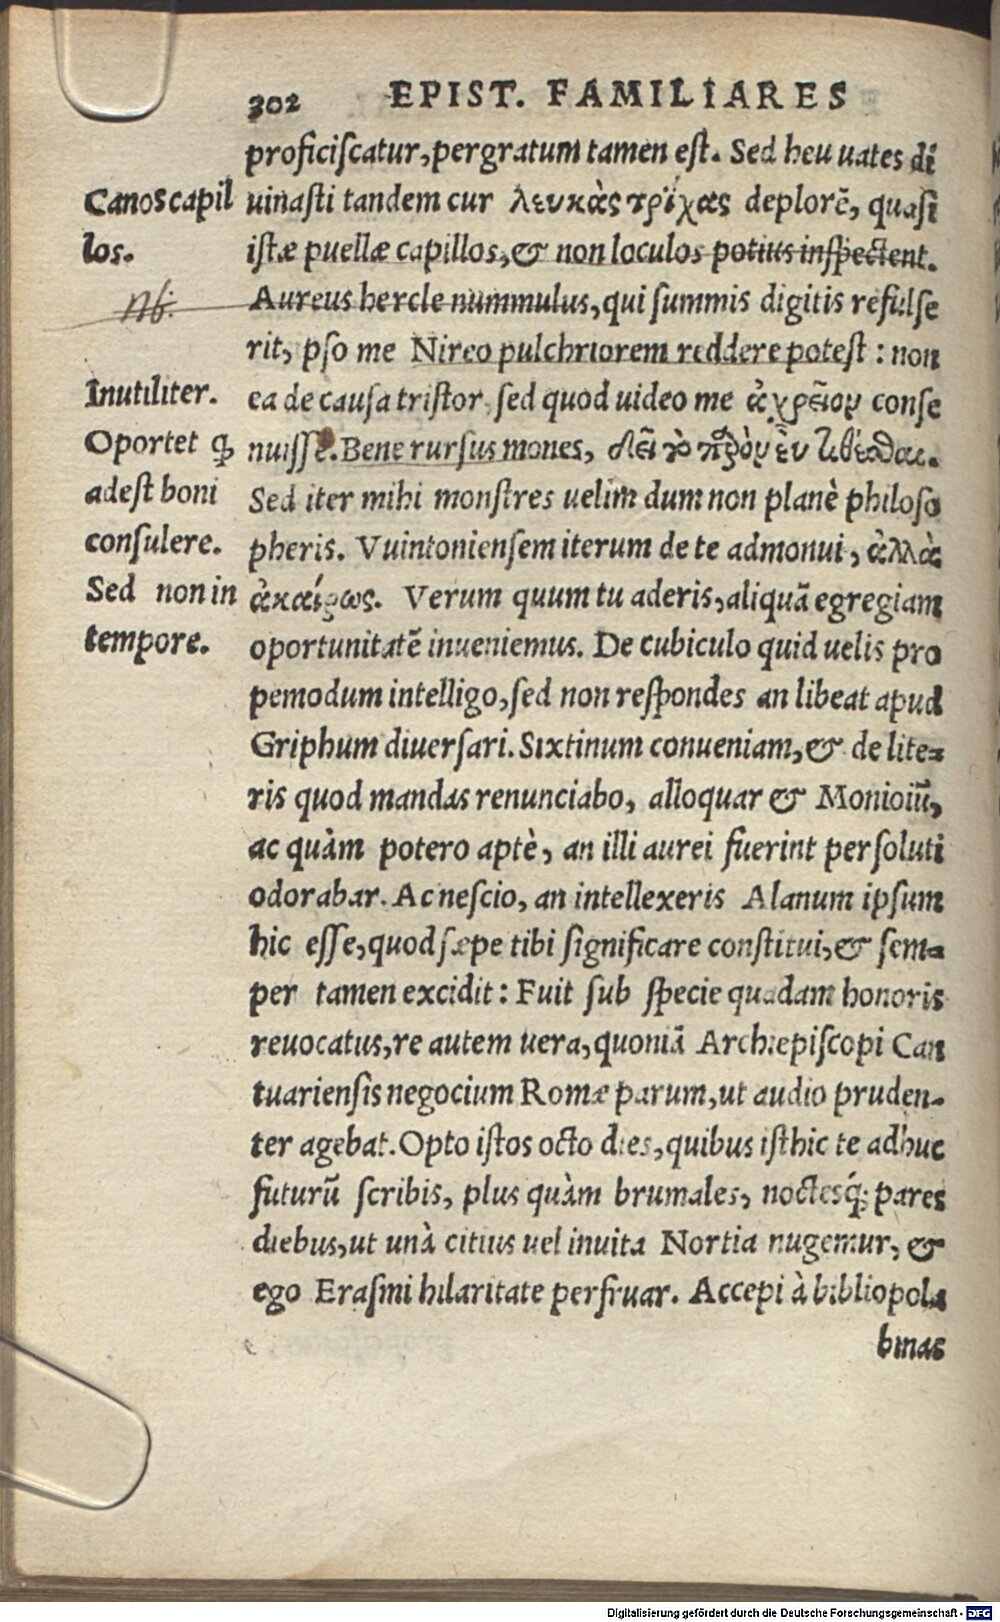 302 EPIST. FAMILIARES
proficiſcatur, pergratum tamen eſt. Sed heu uates di
uinaſti tandem cur λευκὰς τρίχας deplorē, quaſi
iſtæ puellæ capillos, & non loculos potius inſpectent.
Aureus hercle nummulus, qui ſummis digitis refulſe
rit, pſo me Nireo pulchriorem reddere poteſt : non
ea de cauſa triſtor, ſed quod uideo me ἀχρεῖον conſe
nuiſſe. Bene rurſus mones, δεῖ τὸ παρὸν εὖ τίθεσθαι.
Sed iter mihi monſtres uelim dum non planè philoſo
pheris. Vuintonienſem iterum de te admonui, ἀλλὰ
ἀκαίρως. Verum quum tu aderis, aliquā egregiam
oportunitatē inueniemus. De cubiculo quid uelis pro
pemodum intelligo, ſed non reſpondes an libeat apud
Griphum diuerſari. Sixtinum conueniam, & de lite-
ris quod mandas renunciabo, alloquar & Monioiū,
ac quàm potero aptè, an illi aurei fuerint perſoluti
odorabar. Ac neſcio, an intellexeris Alanum ipſum
hic eſſe, quod ſæpe tibi ſignificare conſtitui, & ſem-
per tamen excidit : Fuit ſub ſpecie quadam honoris
reuocatus, re autem uera, quoniā Archiepiſcopi Can
tuarienſis negocium Romæ parum, ut audio pruden-
ter agebat. Opto iſtos octo dies, quibus iſthic te adhuc
futurū ſcribis, plus quàm brumales, noctesq́; pares
diebus, ut unà citius uel inuita Nortia nugemur, &
ego Eraſmi hilaritate perfruar. Accepi à bibliopola
binas
Canos capil
los.
nb.
Inutiliter.
Oportet ꝙ
adeſt boni
conſulere.
Sed non in
tempore.
Digitalisierung gefördert durch die Deutsche Forschungsgemeinschaft - DFG